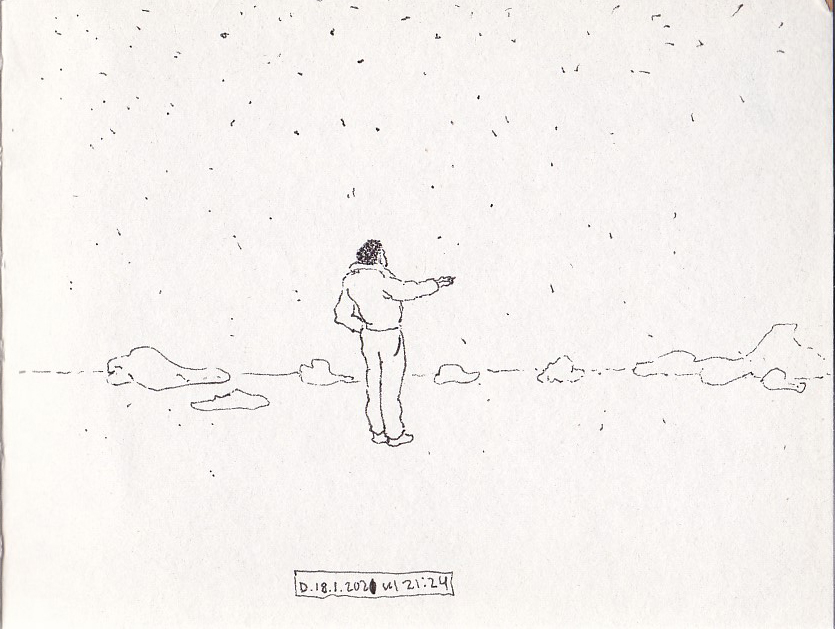 D.18.1.2021 kl 21:24